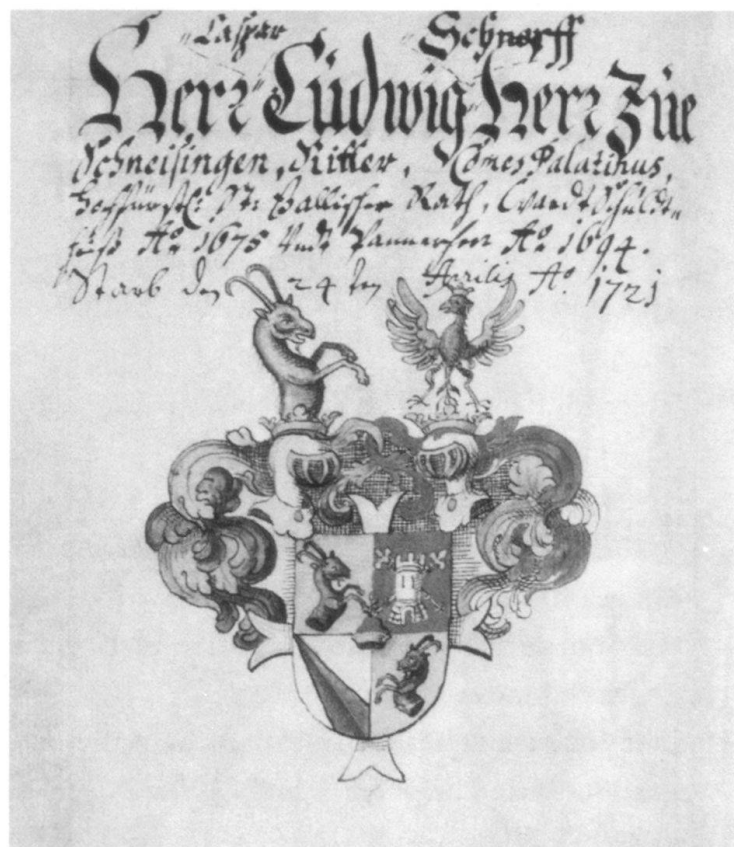 Caspar Schnorff
Herr Ludwig Herr Züe
Schneisingen, Ritter, Comes Palatinus,
Hochfürstl: St: Gallischer Rath, Schuldt
heiß Aō 1675 Undt Pannerherr Aō 1694.
Starb den 24 ten Aprilis Aō 1721